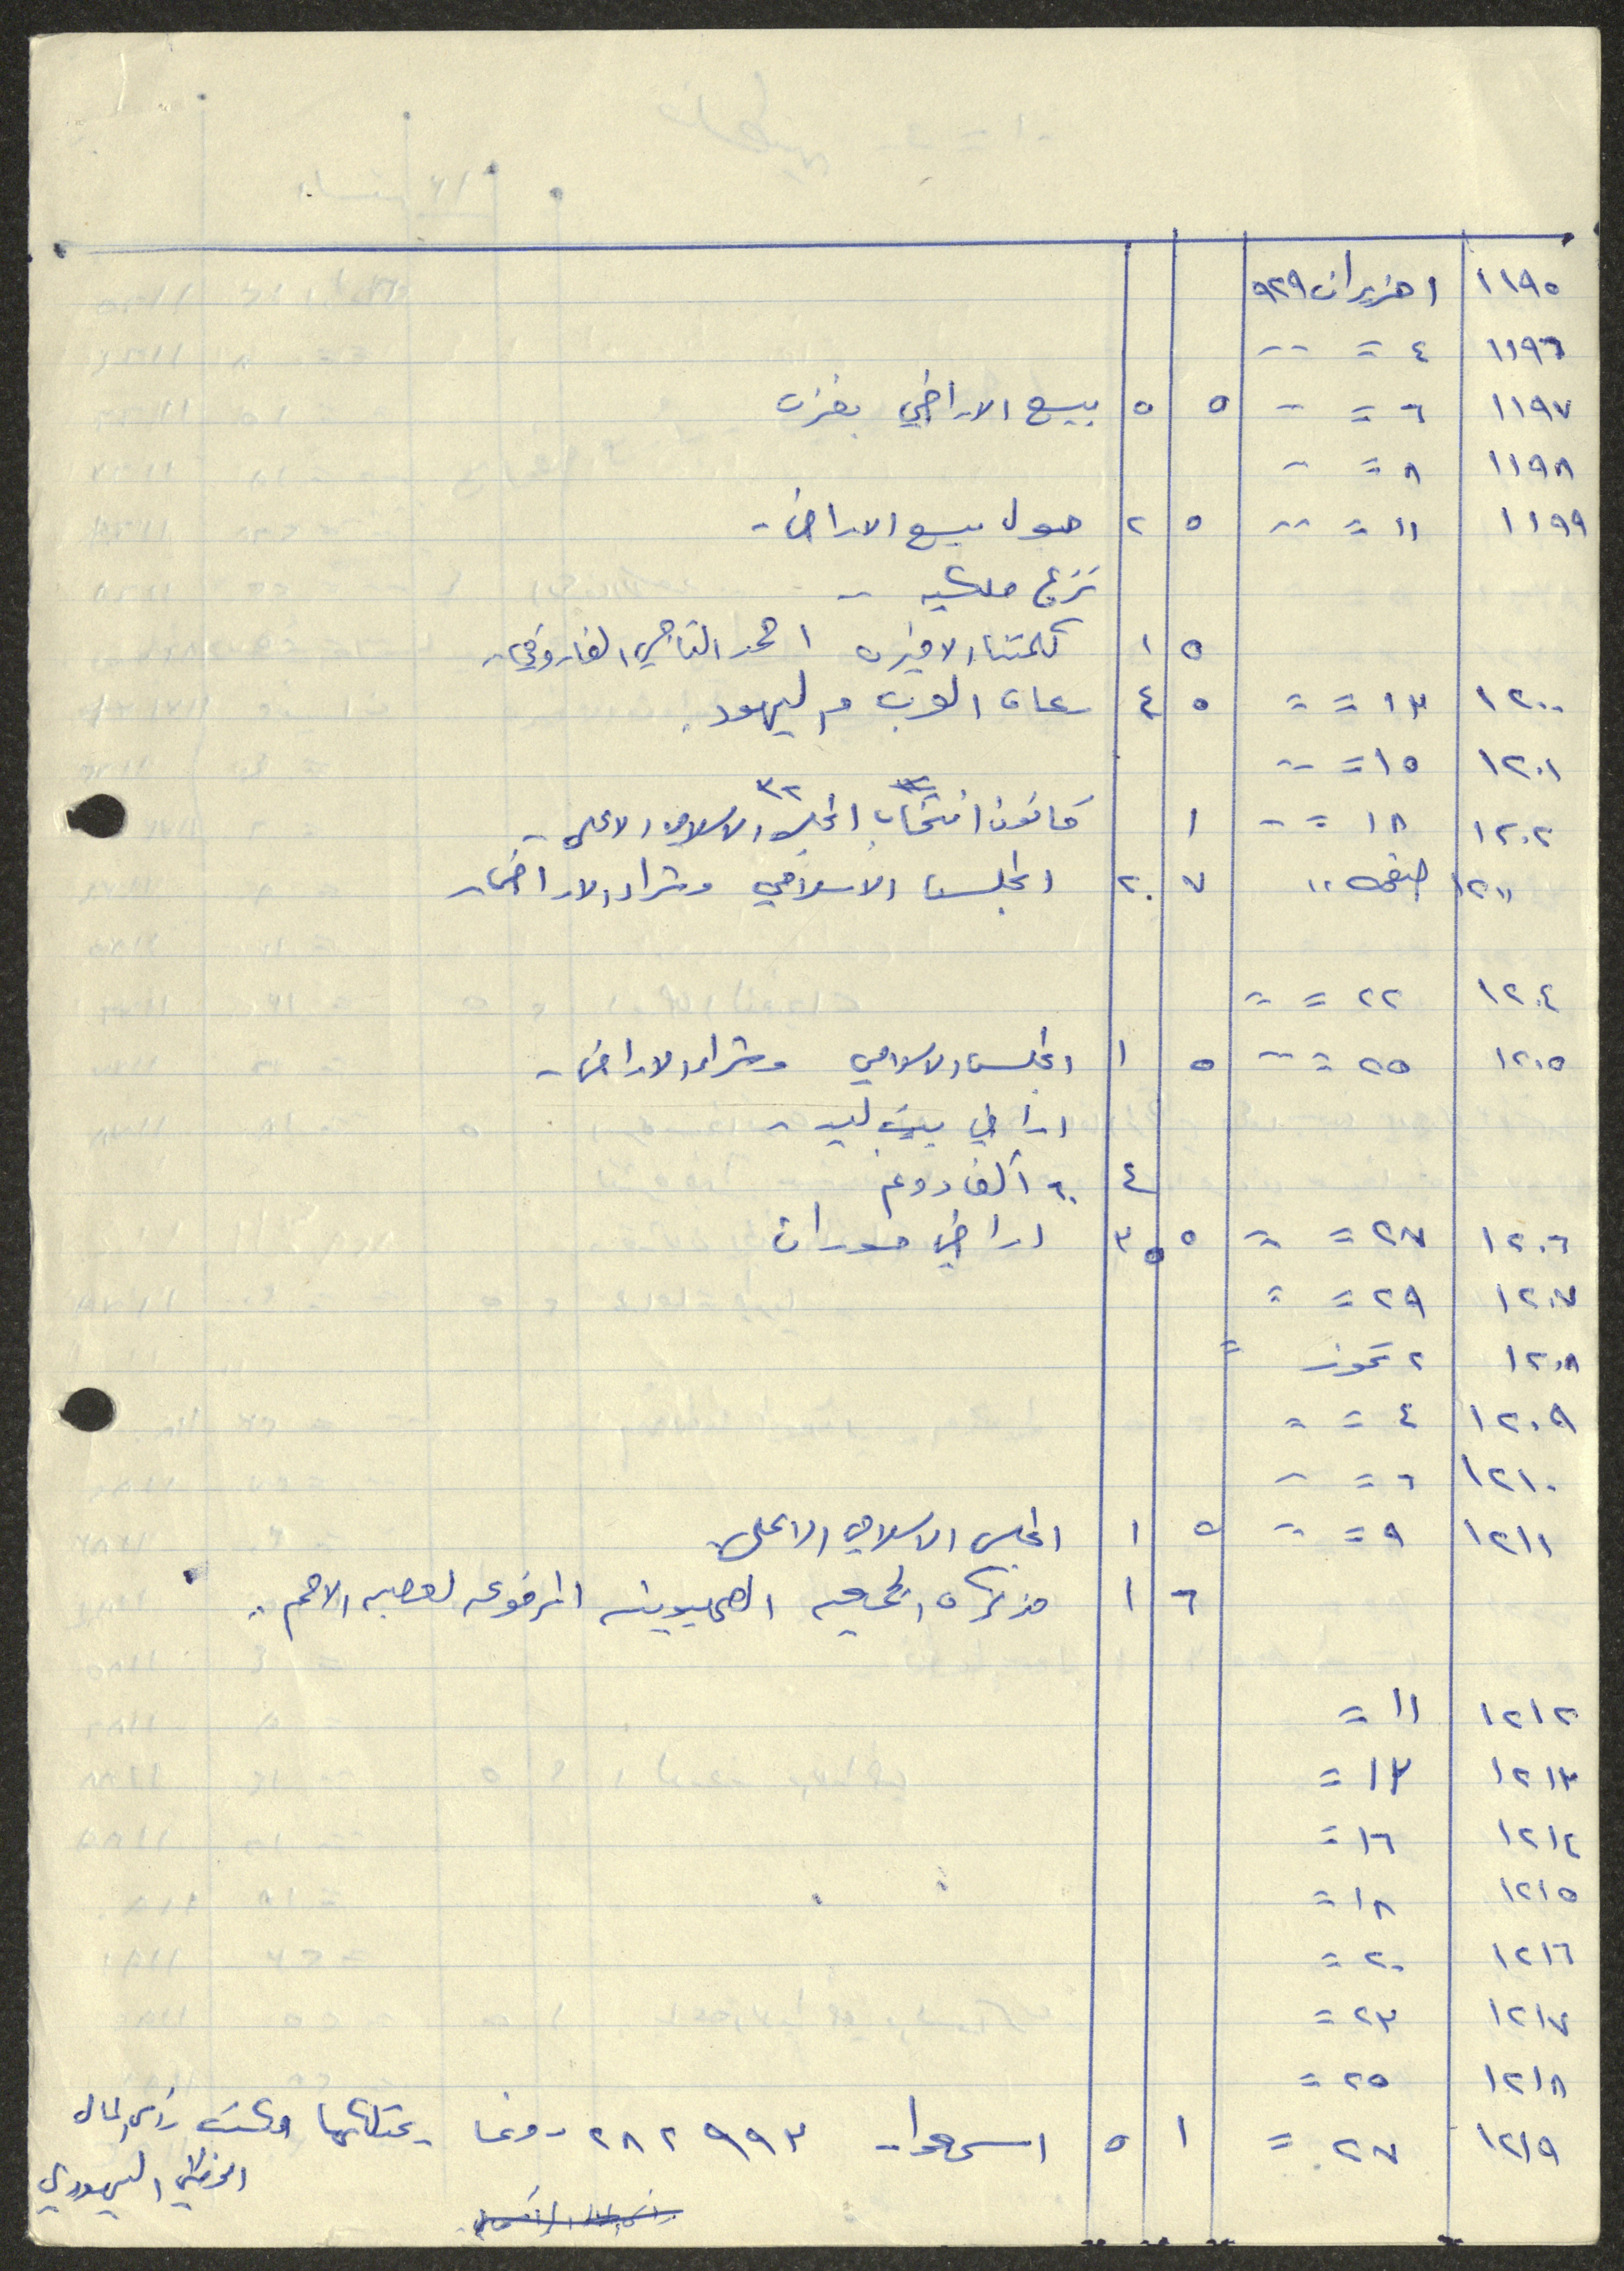 ١١٩٥ ١ حزيران ٩٢٩
١١٩٦ ٤ = --
١١٩٧ ٦ = - ٥ ٥ بيع الاراضي بغزة
١١٩٨ ٨ = -
١١٩٩ ١١ = -- ٥ ٢ حول بيع الاراضي -
نزع ملكيه -
٥ ١ كلمتنا الاخيرة احمد التاجي الفاروقي -
١٢٠٠ ١٣ = = ٥ ٤ العرب واليهود
١٢٠١ ١٥ = --
١٢٠٢ ١٨ = -- ١ قانون انتخاب المجلس الاسلامي الاعلى - ٣٢
١٢١١ ٧ ٢ المجلس الاسلامي وشراء الاراضي -
١٢٠٤ ٢٢ = =
١٢٠٥ ٢٥ = -- ٥ ١ المجلس الاسلامي وشراء الاراضي -
اراضي بيت ليد -
٤ ٦٠ الف دونم
١٢٠٦ ٢٧ = = ٥ ٣ اراضي حوران
١٢٠٧ ٢٩ = =
١٢٠٨ ٢ تموز =
١٢٠٩ ٤ = =
١٢١٠ ٦ = -
١٢١١ ٩ = - ٥ ١ المجلس الاسلامي الاعلى
٦ ١ مذكرة الجمعيه الصهيونيه المرفوعه لعصبه الامم
١٢١٢ ١١ =
١٢١٣ ١٣ =
١٢١٤ ١٦ =
١٢١٥ ١٨ =
١٢١٦ ٢٠ =
١٢١٧ ٢٣ =
١٢١٨ ٢٥ =
١٢١٩ ٢٧ = ١ ٥ اسمعوا - ٢٨٢٩٩٣ دونما يمتلكها رأس المال
اليهودي